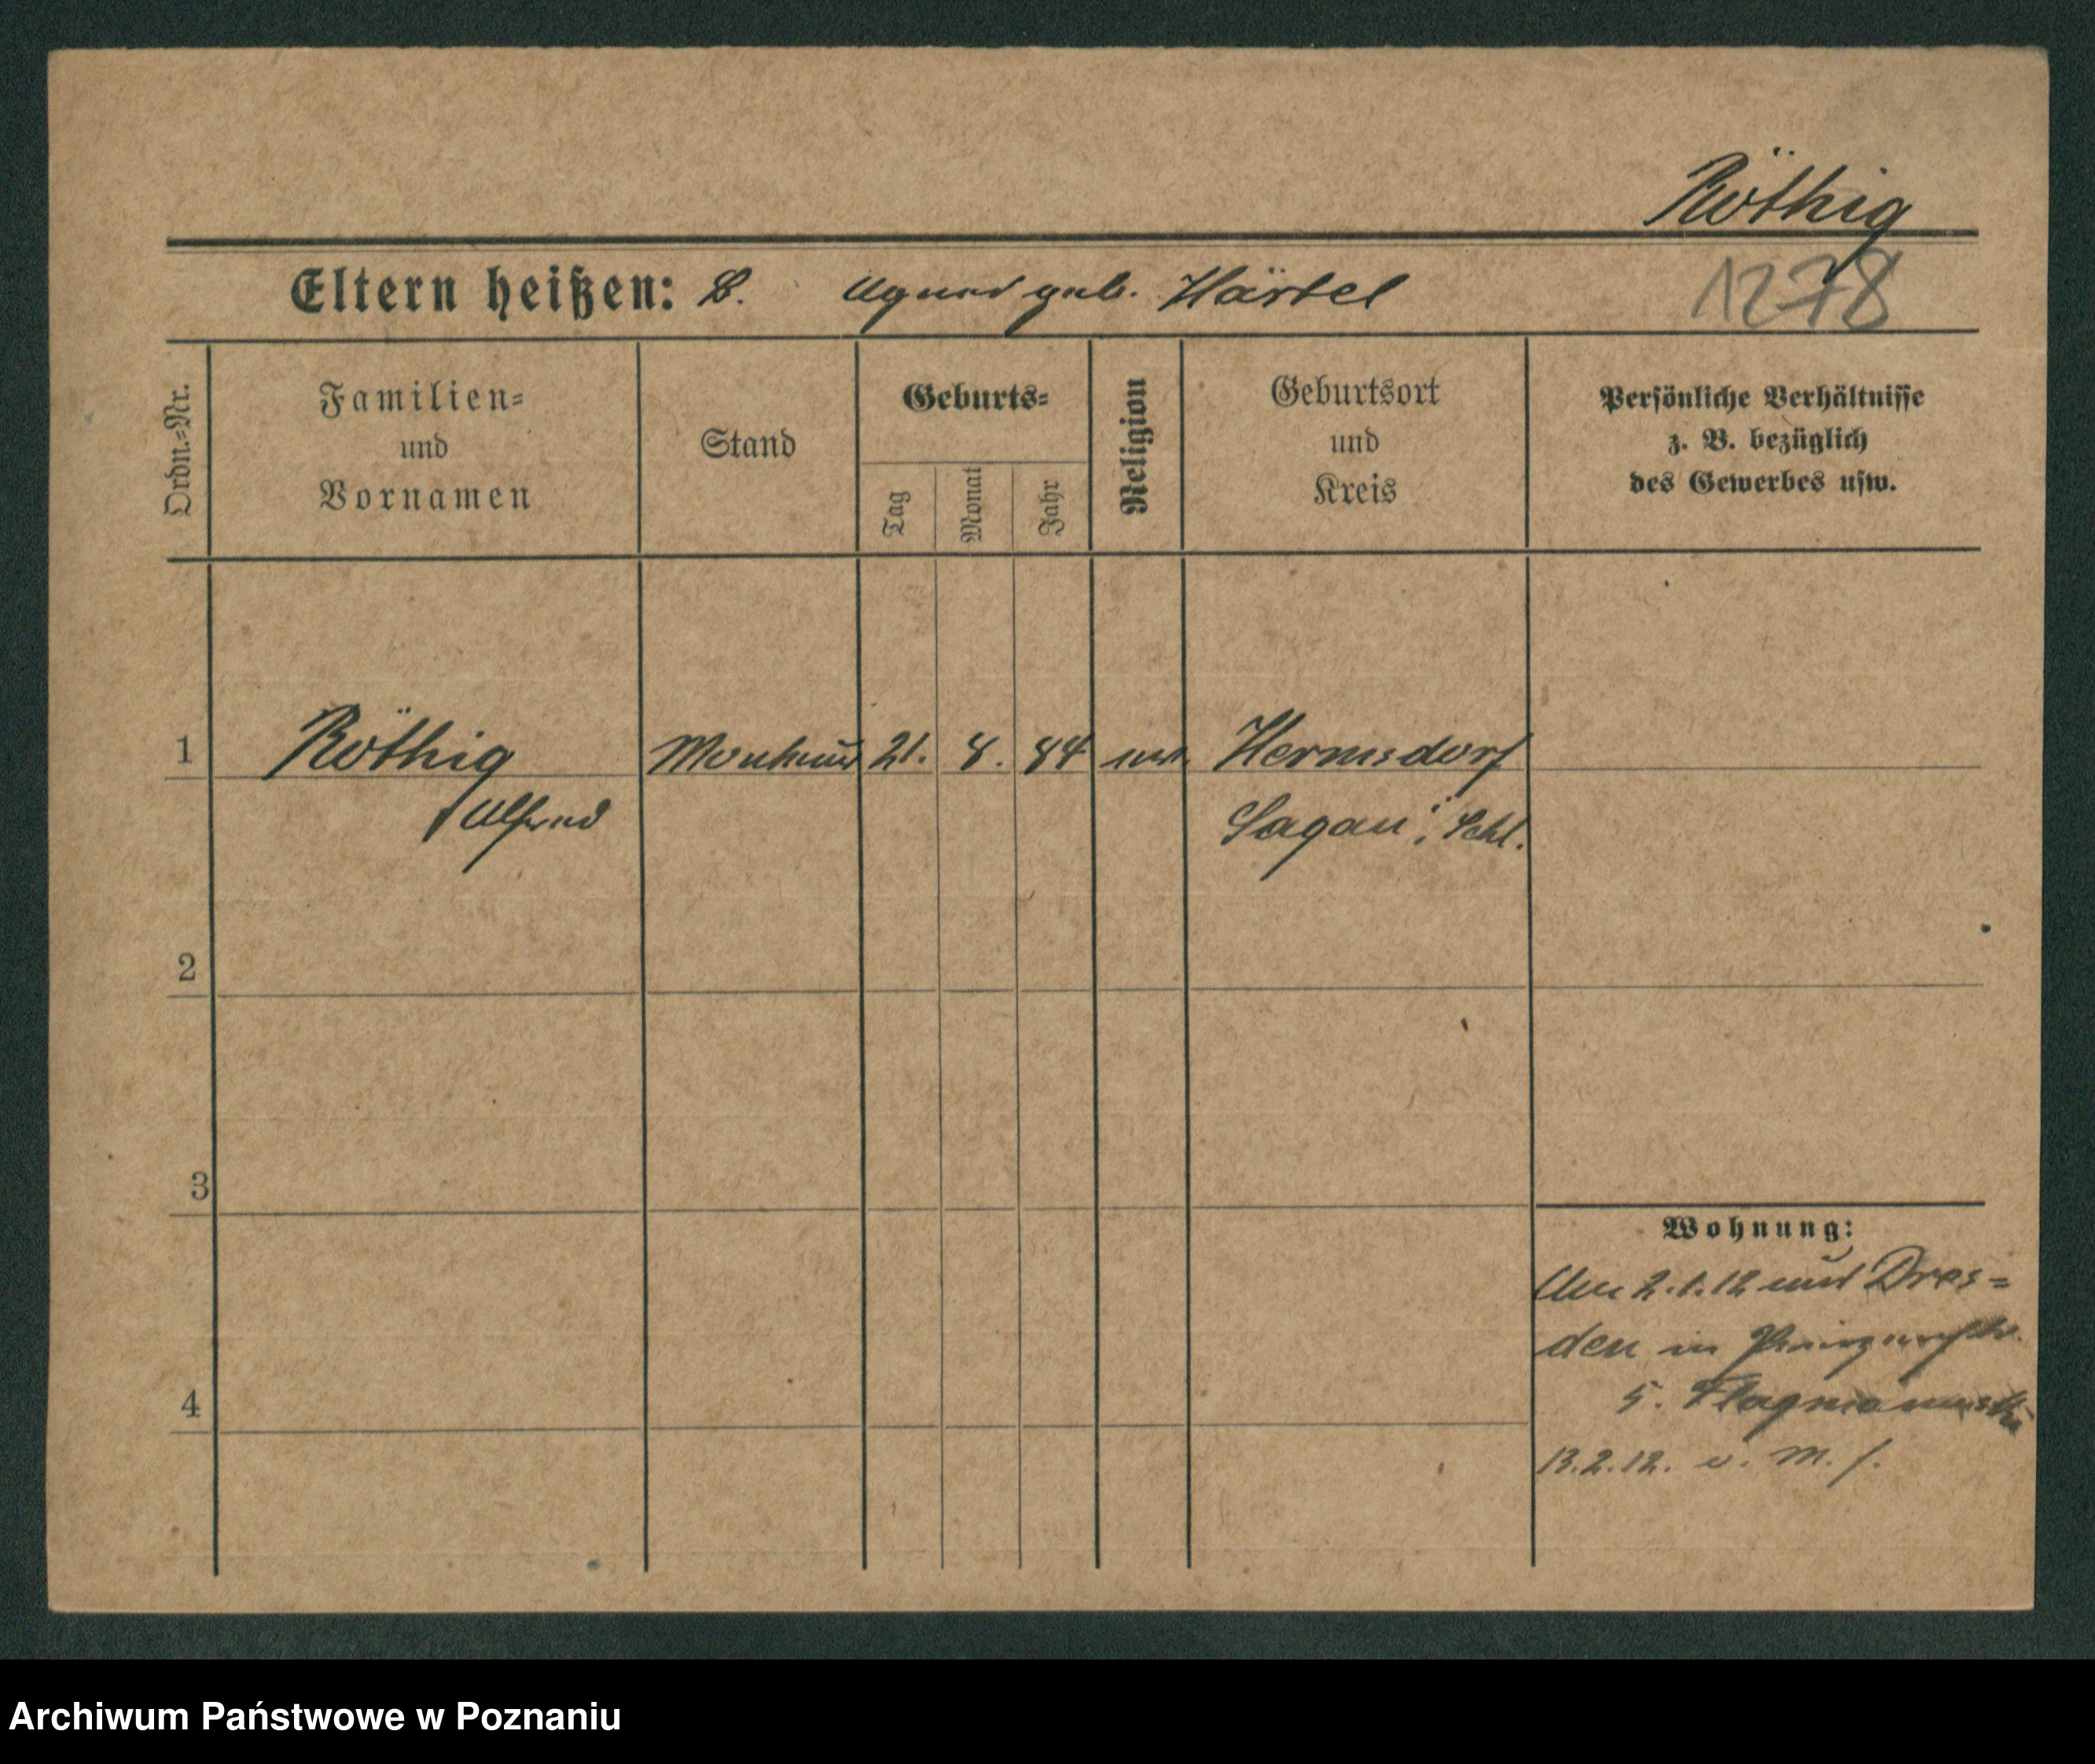 Röthig
Eltern heißen: B. Agnes geb. Härtel
1278
Ordn.=Nr.
Familien=
und
Vornamen
Stand
Geburts=
Tag
Monat
Jahr
Religion
Geburtsort
und
Kreis
Persönliche Verhältnisse
z. B. bezüglich
des Gewerbes usw.
1 Röthig Monteur 21. 8. 84 Hermsdorf
Alfred Sagan i. Schl.
2
3
4
Wohnung:
Am 2.1.12 aus Dres=
den in
5.
13.2.12. v. M. f.
Archiwum Państwowe w Poznaniu